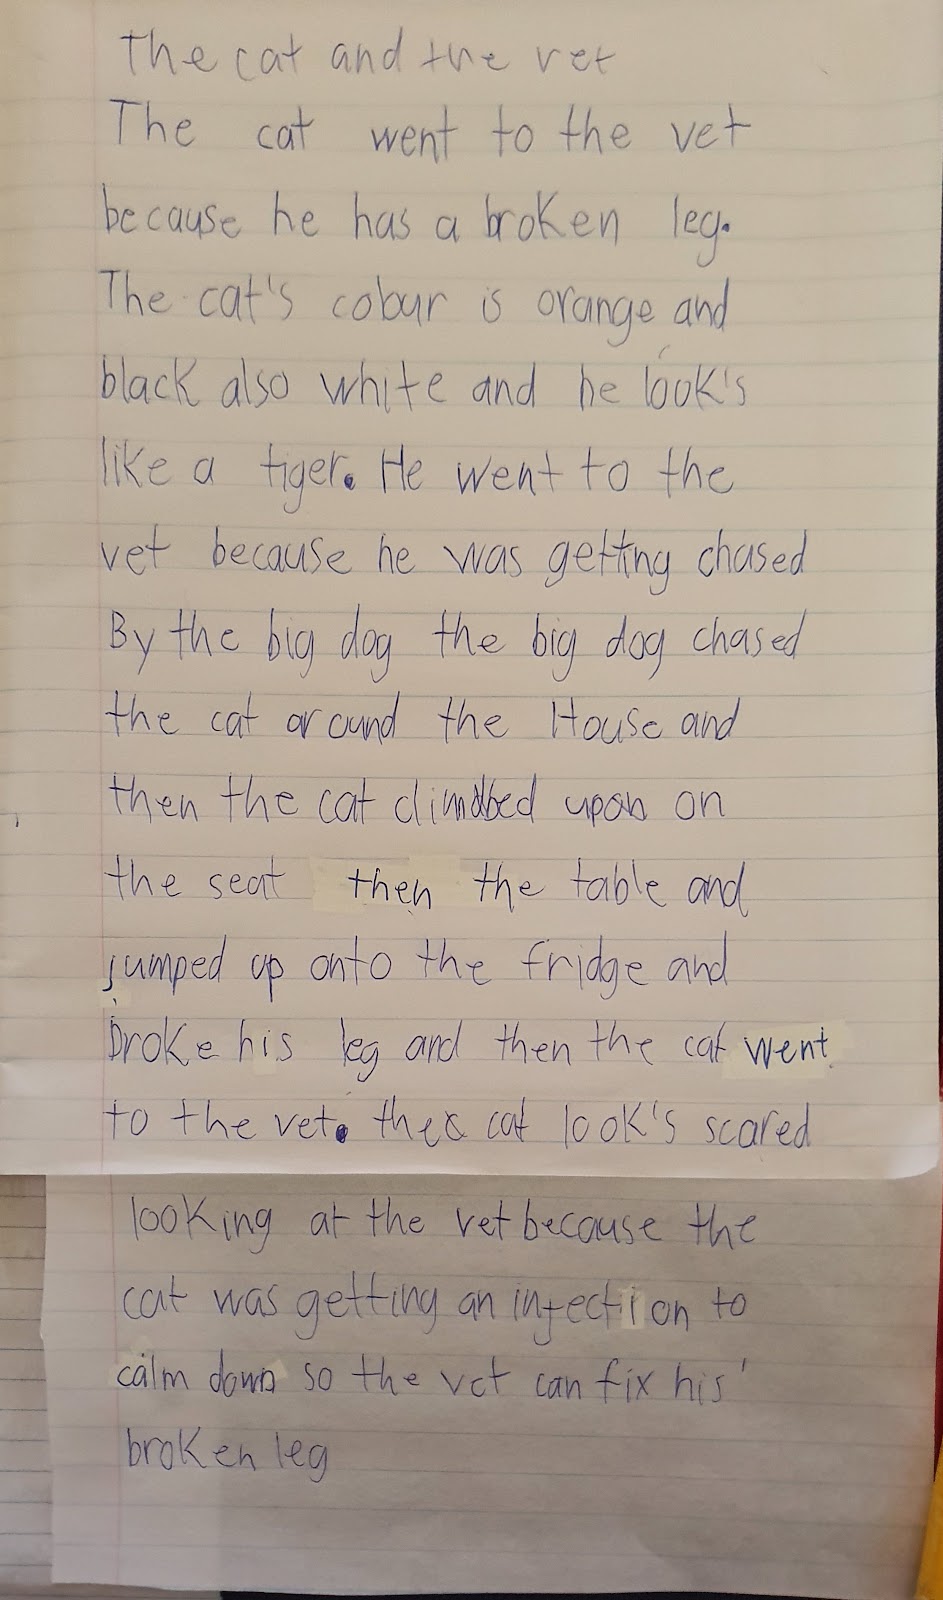 The cat and the vet
The cat went to the vet
because he has a broken leg.
The cat's colour is orange and
black also white and he look's
like a tiger. He went to the
vet because he was getting chased
By the big dog the big dog chased
the cat around the House and
then the cat climbed upon on
the seat then the table and
jumped up onto the fridge and
broke his leg and then the cat went
to the vet. the cat look's scared
looking at the vet because the
cat was getting an injection to
calm down so the vet can fix his'
broken leg